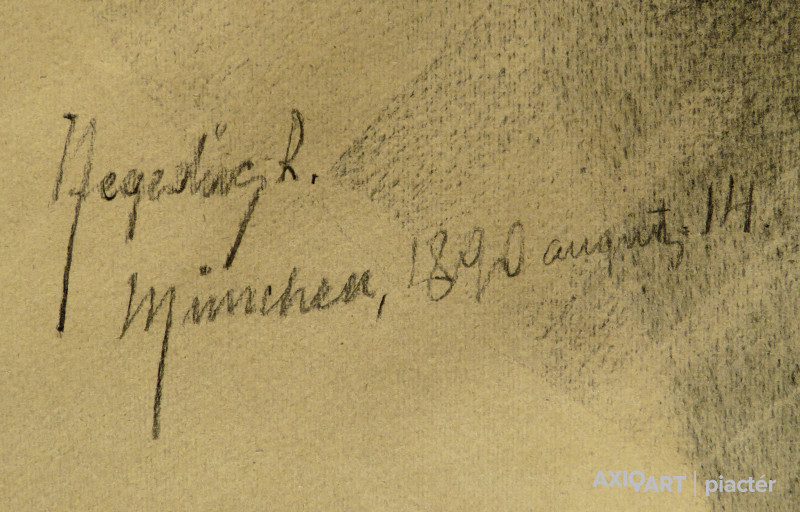 Hegedüs L.
München, 1890 august. 14.
AXIOART | piactér